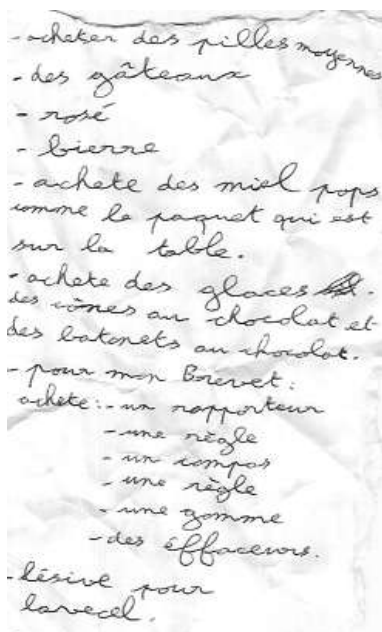 - acheter des pilles moyennes
- des gâteaux
- rosé
- bierre
- achete des miel pops
comme le paquet qui est
sur la table.
- achete des glaces.
des cônes au chocolat et
des batonets au chocolat.
- pour mon Brevet :
achete : - un rapporteur
- une règle
- un compas
- une règle
- une gomme
- des éffaceurs.
- lésive pour
lavecel.